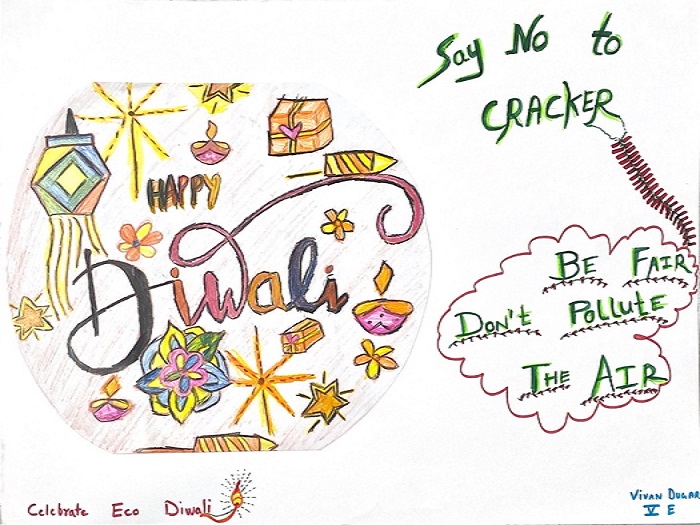 HAPPY
Diwali
Say No to
CRACKER
BE FAIR
DON't POLLUtE
THE AIR
Celebrate Eco Diwali
VIVAN DUGAR
V E